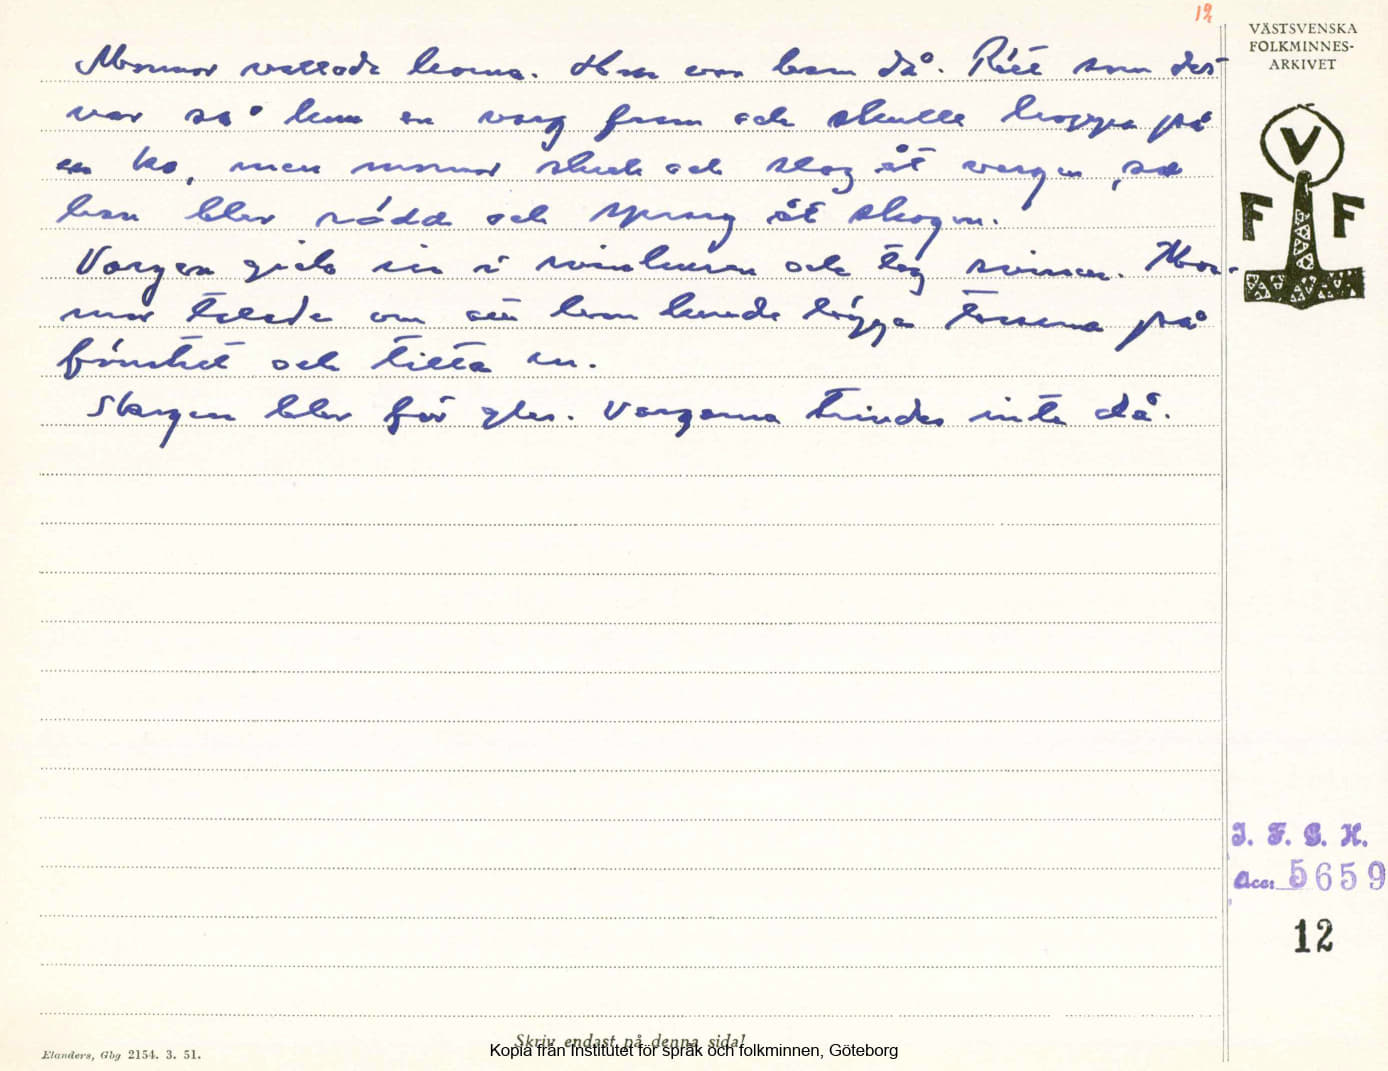 12
VÄSTSVENSKA
FOLKMINNES-
ARKIVET
Mormor vallade korna. Hon var barn då. Rätt som det
var så kom en varg fram och skulle hoppa på
en ko, men mormor skrek och slog åt vargen, så
han blev rädd och sprang åt skogen.
Vargen gick in i svinhusen och tog svinen. Mor-
mor talade om att han kunde lägga tassarna på
fönstret och titta in.
Skogen blev för gles. Vargarna trivdes inte då.
V
F F
I. F. G. H.
Acc: 5659
12
Skriv endast på denna sida!
Kopia från Institutet för språk och folkminnen, Göteborg
Elanders, Gbg 2154. 3. 51.